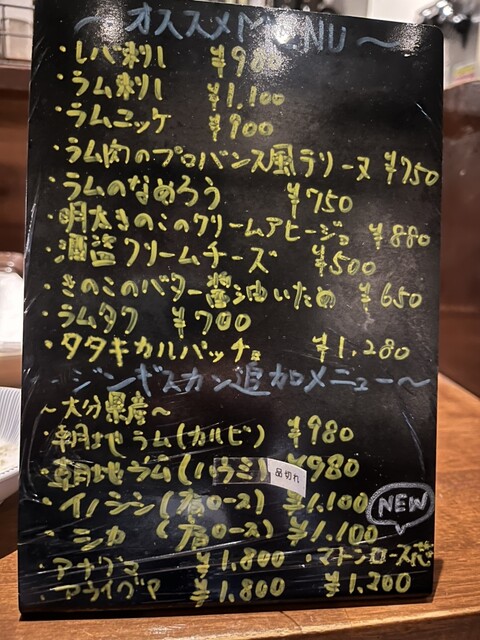 ～オススメMENU～
・レバ刺し ¥980
・ラム刺し ¥1,100
・ラムユッケ ¥900
・ラム肉のプロバンス風テリーヌ ¥750
・ラムのなめろう ¥750
・明太きのこのクリームアヒージョ ¥880
・酒盗クリームチーズ ¥500
・きのこのバター醤油いため ¥650
・ラムタク ¥700
・タタキカルパッチョ ¥1,280
～ジンギスカン追加メニュー～
～大分県産～
・朝地ラム(カルビ) ¥980
・朝地ラム(ハラミ) 品切れ ¥980
・イノシシ(肩ロース) ¥1,100
NEW
・シカ (肩ロース) ¥1,100
・アナグマ ¥1,800 ・マトンロース芯
・アライグマ ¥1,800 ¥1,200